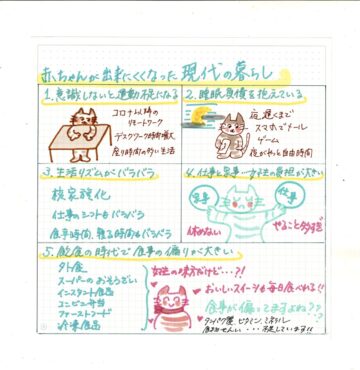 赤ちゃんが出来にくくなった現代の暮らし
1.意識しないと運動不足になる
コロナ以降の
リモートワーク
デスクワーク時間増大
座り時間の多い生活
2.睡眠負債を抱えている
夜遅くまで
スマホでメール
ゲーム
夜がやっと自由時間
3.生活リズムがバラバラ
核家族化
仕事のシフトもバラバラ
食事時間、寝る時間もバラバラ
4.仕事と家事…女性の負担が大きい
家事
仕事
休めない
やること多すぎ
5.飽食の時代で食事の偏りが大きい
外食
スーパーのおそうざい
インスタント食品
コンビニ弁当
ファーストフード
冷凍食品
女性の味方だけど…?!
おいしいスイーツも毎日食べれる!
食事が偏ってますよね??
タンパク質、ビタミン、ミネラル
食物せんい…不足しています!!